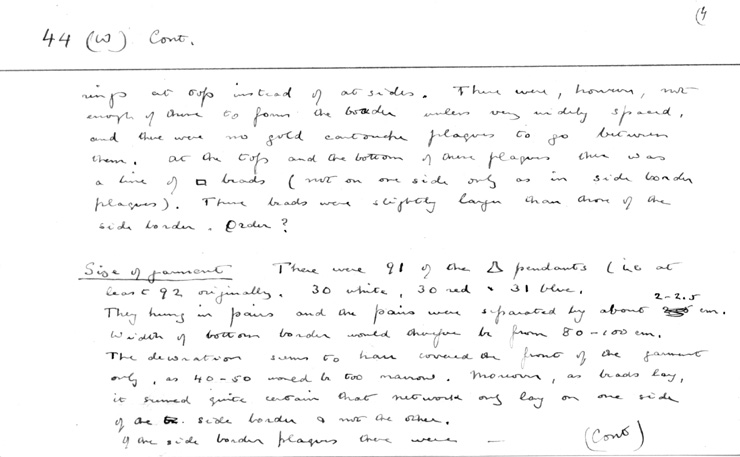 (4
44 (W) Cont.
rings at tops instead of at sides. There were, however, not
enough of these to form the border unless very widely spaced,
and there were no gold cartouche plaques to go between
them. At the tops and the bottom of these plaques there was
a line of □ beads (not on one side only as in side border
plaques). These beads were slightly larger than those of the
side border. Order?
Size of garment There were 91 of the pendants (i.e. at
least 92 originally. 30 white, 30 red & 31 blue.
2-2.5
They hung in pairs and the pairs were separated by about cm.
Width of bottom border would therefore be from 80-100 cm.
The decoration seems to have covered the front of the garment
only, as 40-50 would be too narrow. Moreover, as beads lay,
it seemed quite certain that network only lay on one side
of the side border & not the other.
Of the side border plaques there were —
(Cont)